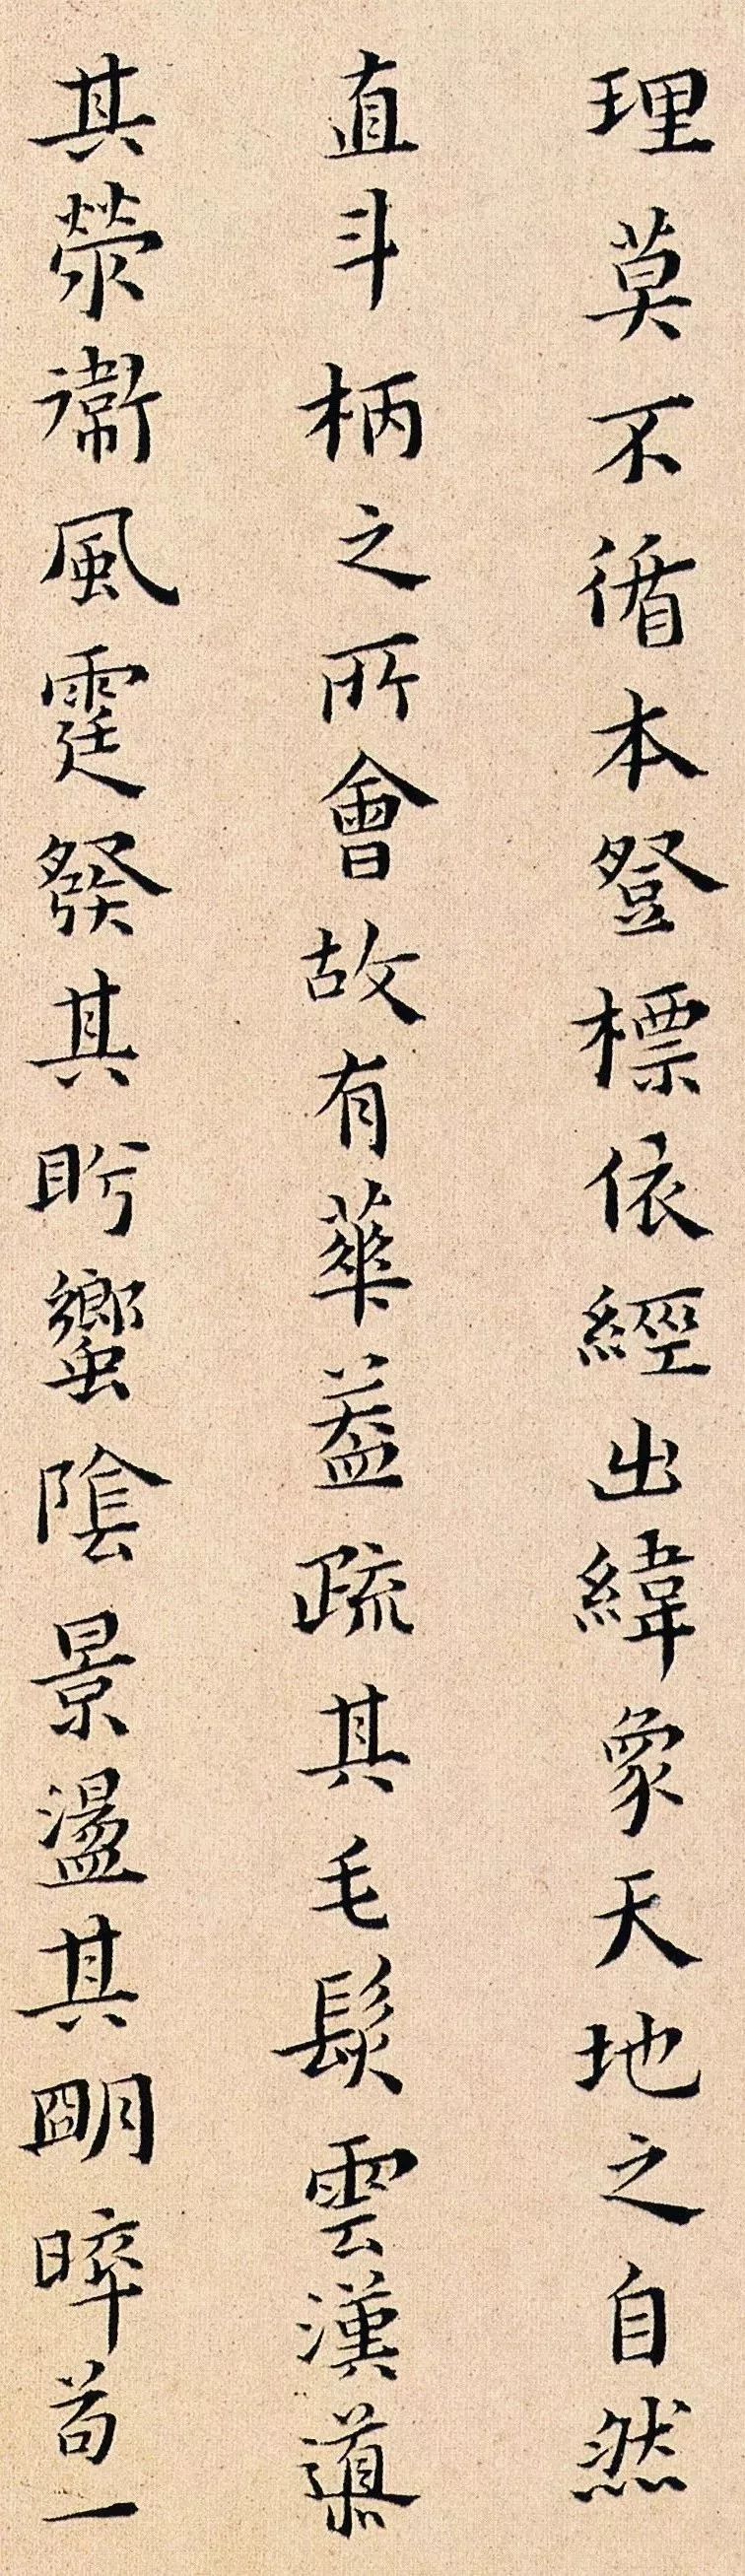 理莫不循本登標依經出緯象天地之自然
直斗柄之所會故有華蓋疏其毛髮雲漢導
其滎衛風霆發其盻蠁陰景盪其明晬苟一